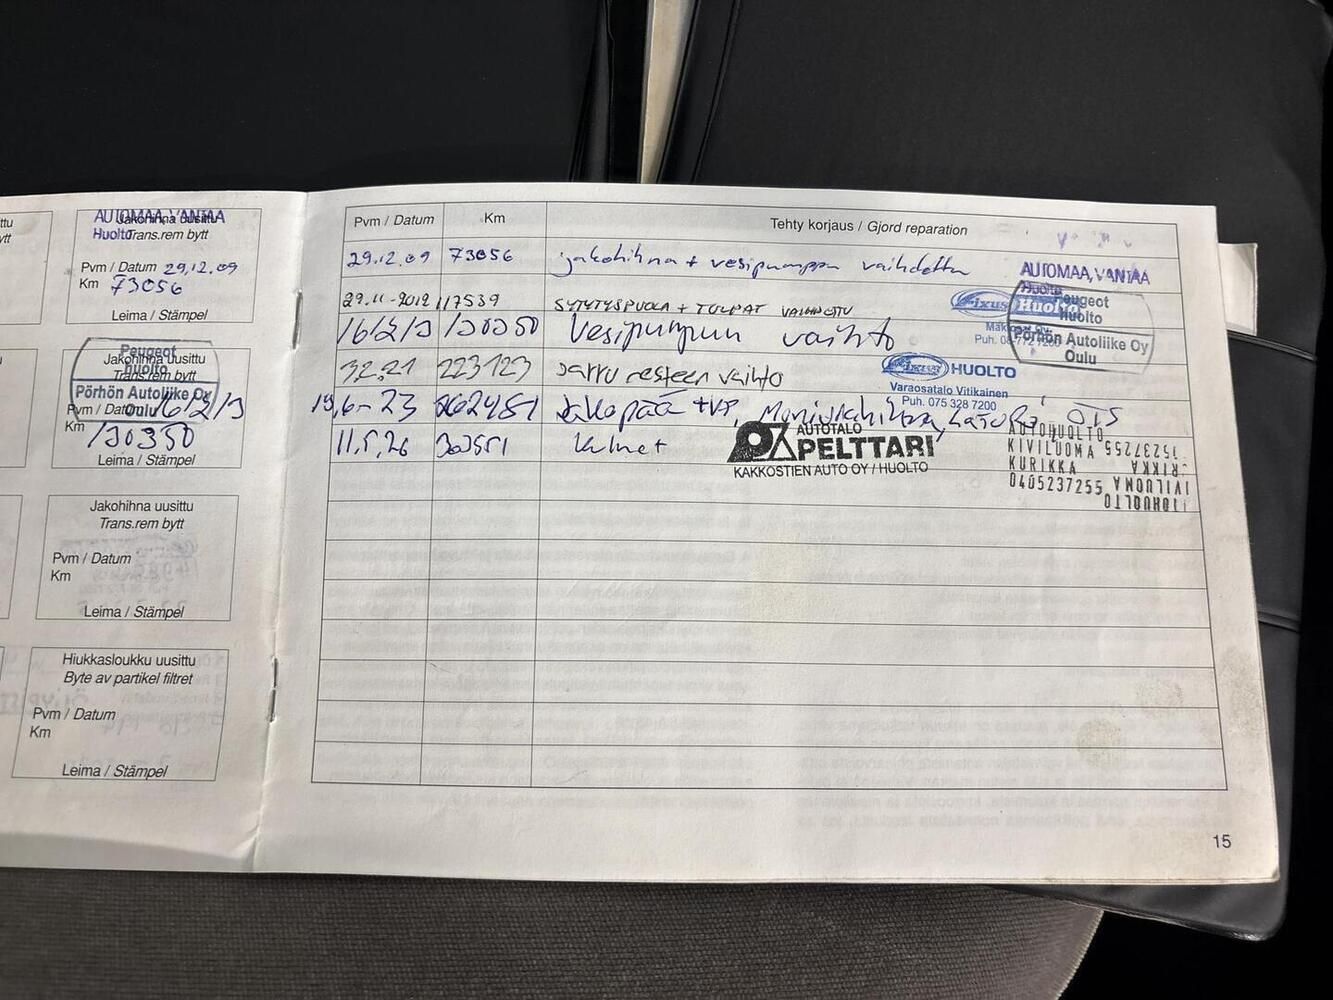 AUTOMAA, VANTAA
Huolto
Jakohihna uusittu
Trans.rem bytt
Pvm / Datum 29.12.09
Km 73056
Leima / Stämpel
Peugeot
huolto
Pörhön Autoliike Oy
Oulu
Jakohihna uusittu
Trans.rem bytt
Pvm / Datum 16/2/13
Km
130350
Leima / Stämpel
Jakohihna uusittu
Trans.rem bytt
Pvm / Datum
Km
Leima / Stämpel
Hiukkasloukku uusittu
Byte av partikel filtret
Pvm / Datum
Km
Leima / Stämpel
Pvm / Datum Km Tehty korjaus / Gjord reparation
29.12.09 73056 jakohihna + vesipumppu vaihdettu
AUTOMAA, VANTAA
Huolto
29.11-2012 117539 SYTYTYSPUOLA + TULPAT VAIHDETTU
Fixus Huolto
Peugeot
Huolto
Pörhön Autoliike Oy
Oulu
16/2/13 130350 Vesipumpun vaihto
3.2.21 223123 Jarrunesteen vaihto
Fixus HUOLTO
Varaosatalo Vitikainen
Puh. 075 328 7200
19.6-23
AUTOTALO
PELTTARI
KAKKOSTIEN AUTO OY / HUOLTO
11.5.26
AUTOHUOLTO
KIVILUOMA
KURIKKA
0405237255
15